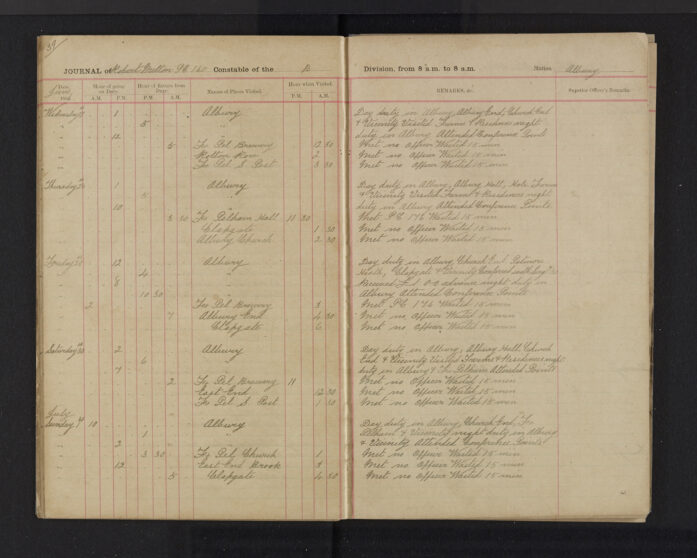 39
JOURNAL of Robert PC 140 Constable of the Division, from 8 a.m. to 8 a.m. Station Albury
Date. Hour of going on Duty. Hour of Return from Duty. Names of Places Visited. Hour when Visited. REMARKS, &c. Superior Officer's Remarks.
A.M. P.M. P.M. A.M. P.M. A.M.
June
Wednesday 1 Albury Day duty in Albury, Albury End, Church End
5 & Vicinity Visited Farms & Residences night
12 duty in Albury Attended Conference Points
5 Fx Pel Brewery 12 30 Met no Officer Waited 15 min
2 Met no Officer Waited 15 min
Fx Pel S. Post 3 30 Met no Officer Waited 15 min
Thursday 1 Albury Day duty in Albury, Albury Hall, Farms
& Vicinity Visited Farms & Residences night
10 duty in Albury Attended Conference Points
3 30 Fx Pelham Hall 11 30 Met PC 176 Waited 15 min
Clapgate 1 30 Met no Officer Waited 15 min
Albury Church 2 30 Met no Officer Waited 15 min
Friday 12 Albury Day duty in Albury, Church End
4 Clapgate & Vicinity
8 advance night duty in
10 30 Albury Attended Conference Points
2 Fx Pel Brewery 3 Met PC 176 Waited 15 min
7 Albury End 4 30 Met no Officer Waited 15 min
Clapgate 6 Met no Officer Waited 15 min
Saturday 2 Albury Day duty in Albury, Albury Hall, Church
6 End & Vicinity Visited Farms & Residences night
7 duty in Albury & Fx Pelham Attended Points
2 Fx Pel Brewery 11 Met no Officer Waited 15 min
East End 12 30 Met no Officer Waited 15 min
Fx Pel S. Post 1 30 Met no Officer Waited 15 min
July
Sunday 1 10 Albury Day duty in Albury, Church End, Fx
1 Pelham & Vicinity night duty in Albury
2 & Vicinity Attended Conference Points
3 30 Fx Pel Church 1 Met no Officer Waited 15 min
12 East End Brook 3 Met no Officer Waited 15 min
5 Clapgate 4 30 Met no Officer Waited 15 min